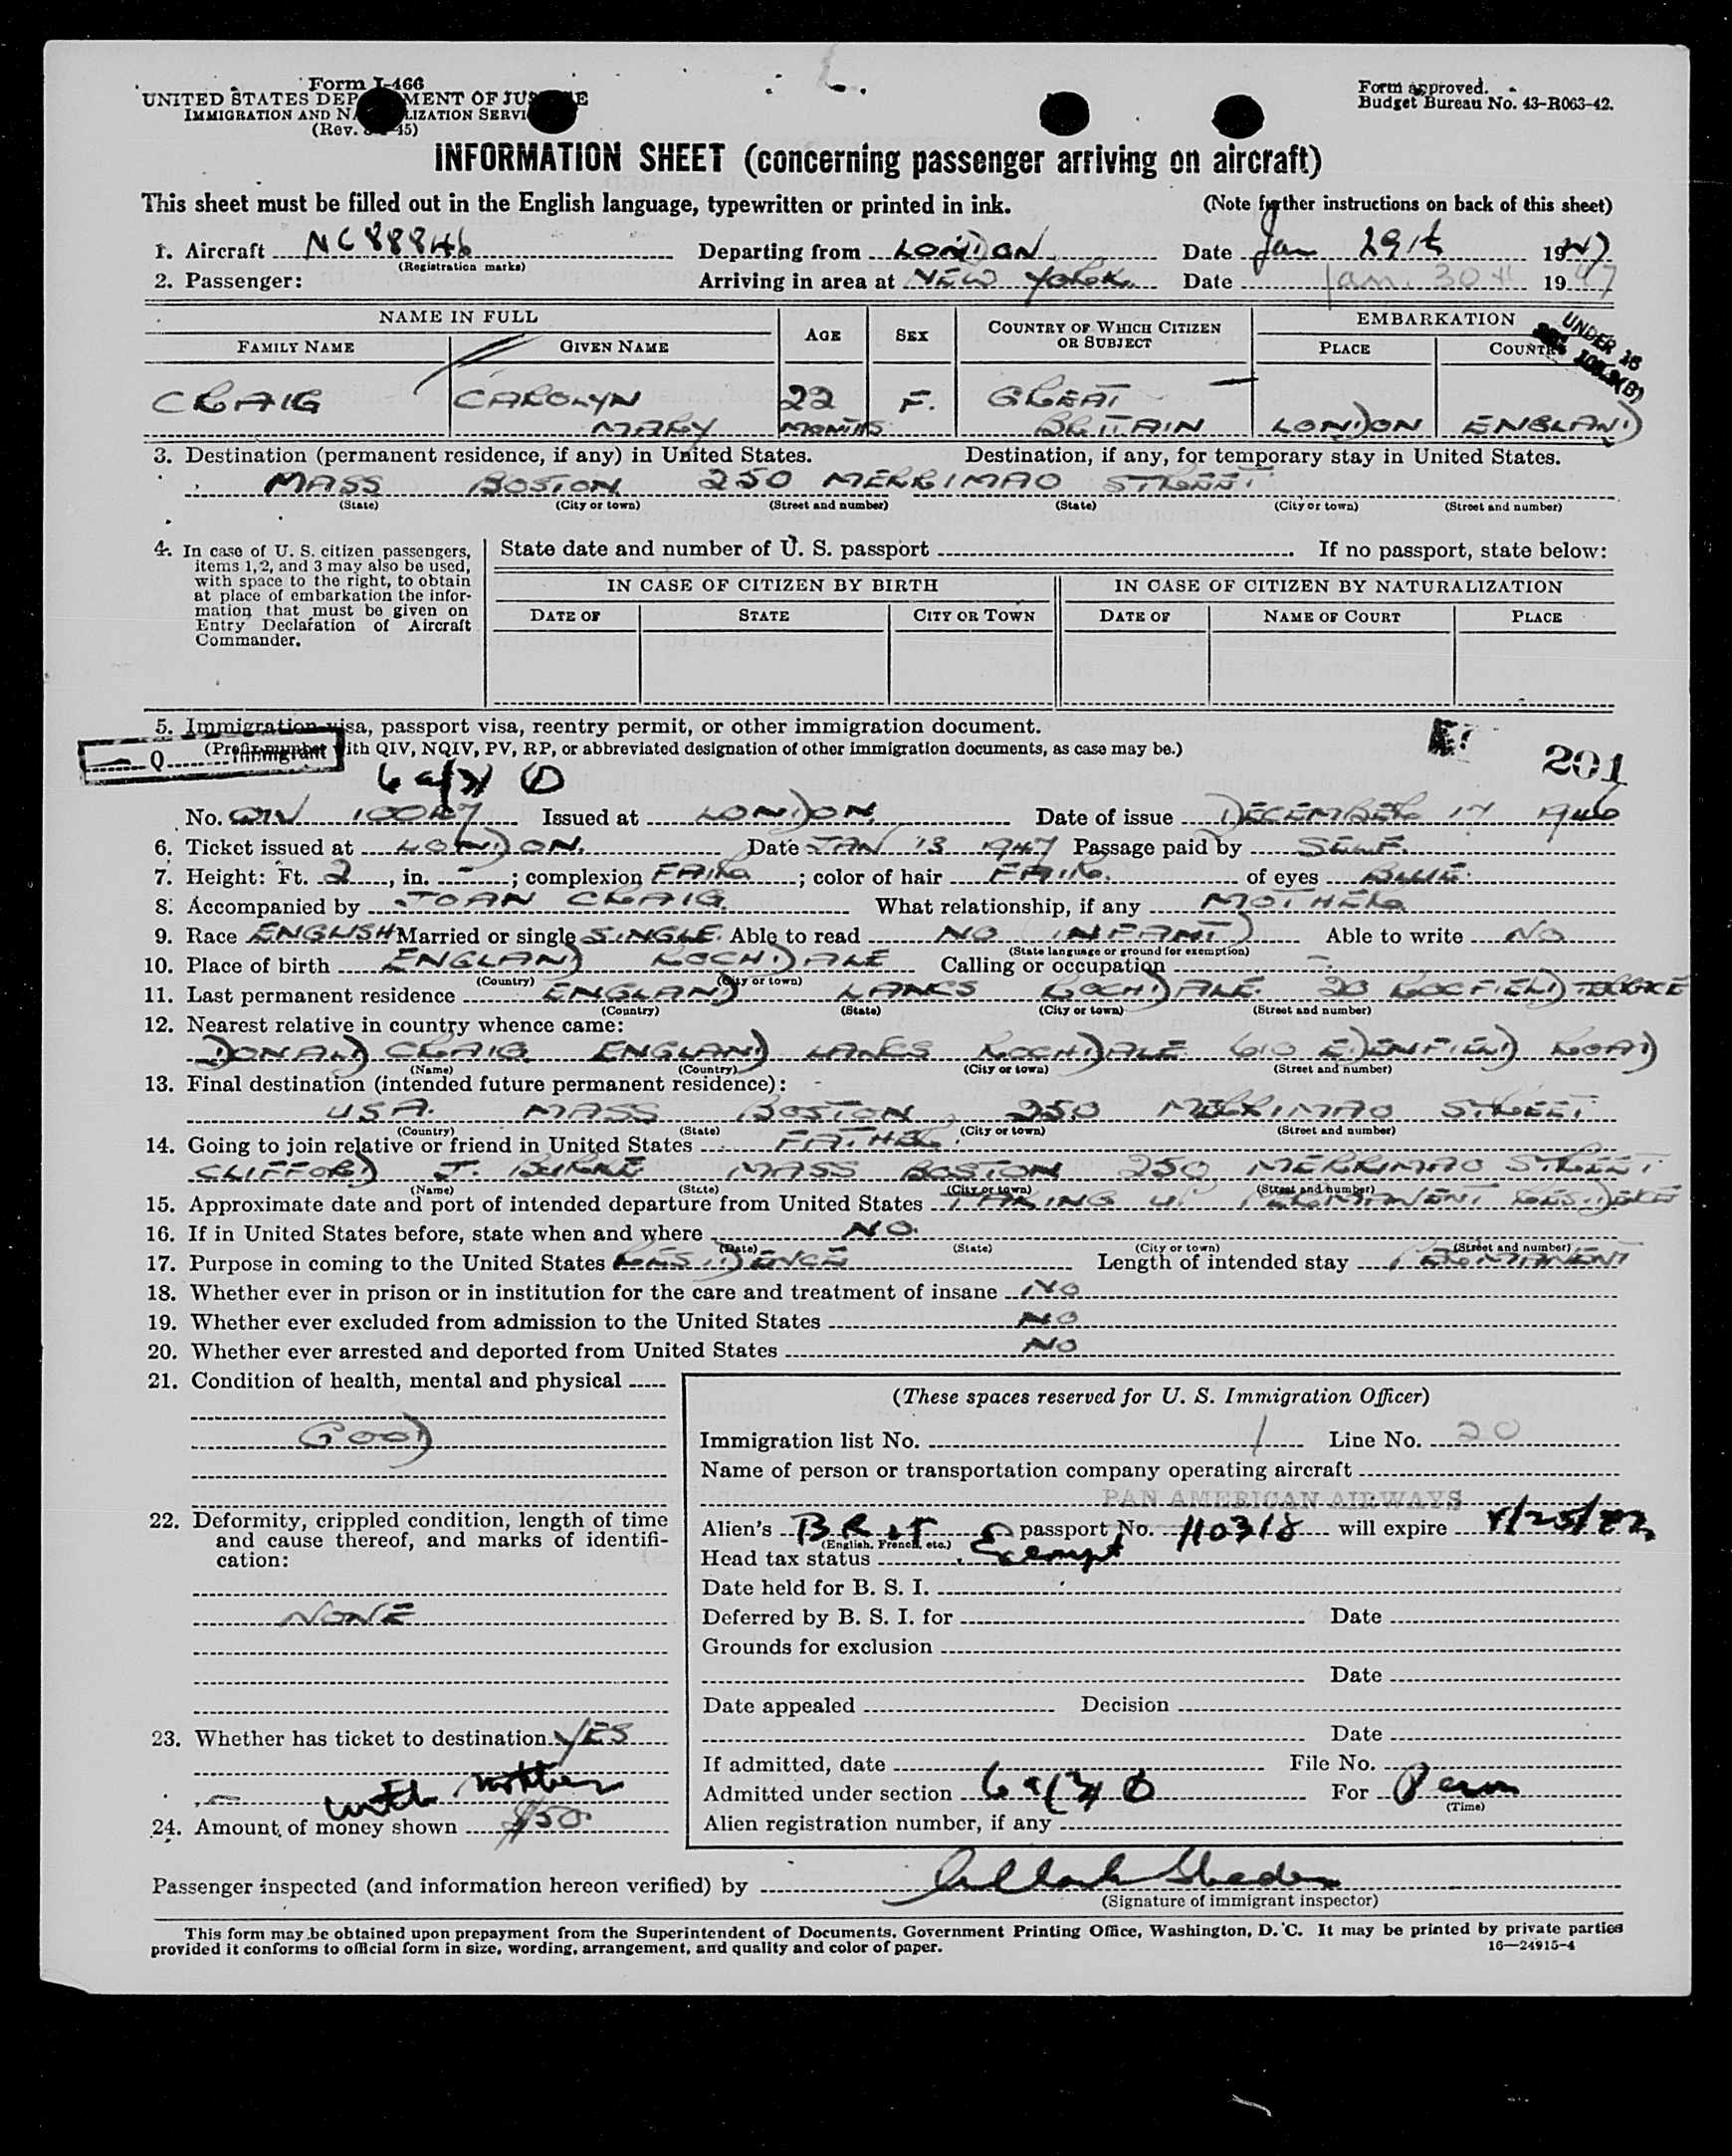 Form I-466
UNITED STATES DEP MENT OF JUS E
IMMIGRATION AND NA LIZATION SERVI
(Rev. 45)
Form approved.
Budget Bureau No. 43-R063-42.
INFORMATION SHEET (concerning passenger arriving on aircraft)
This sheet must be filled out in the English language, typewritten or printed in ink. (Note further instructions on back of this sheet)
1. Aircraft NC88846 Departing from LONDON Date Jan 29th 1947
(Registration marks)
2. Passenger: Arriving in area at NEW YORK Date Jan. 30 1947
NAME IN FULL AGE SEX COUNTRY OF WHICH CITIZEN OR SUBJECT EMBARKATION
FAMILY NAME GIVEN NAME PLACE COUNTRY
UNDER 16
CRAIG CAROLYN 22 F. GREAT
MARY MONTHS BRITAIN LONDON ENGLAND
3. Destination (permanent residence, if any) in United States. Destination, if any, for temporary stay in United States.
MASS BOSTON 250 MERRIMAO STREET
(State) (City or town) (Street and number) (State) (City or town) (Street and number)
4. In case of U. S. citizen passengers,
items 1, 2, and 3 may also be used,
with space to the right, to obtain
at place of embarkation the infor-
mation that must be given on
Entry Declaration of Aircraft
Commander.
State date and number of U. S. passport If no passport, state below:
IN CASE OF CITIZEN BY BIRTH IN CASE OF CITIZEN BY NATURALIZATION
DATE OF STATE CITY OR TOWN DATE OF NAME OF COURT PLACE
5. Immigration visa, passport visa, reentry permit, or other immigration document.
(Prefix number with QIV, NQIV, PV, RP, or abbreviated designation of other immigration documents, as case may be.)
Q Immigrant
201
No. QIV Issued at LONDON Date of issue DECEMBER 17 1946
6. Ticket issued at LONDON. Date JAN 13 1947 Passage paid by SELF.
7. Height: Ft. 2, in. -; complexion FAIR; color of hair FAIR. of eyes BLUE.
8. Accompanied by JOAN CRAIG What relationship, if any MOTHER
9. Race ENGLISH Married or single SINGLE. Able to read NO (INFANT) Able to write NO
(State language or ground for exemption)
10. Place of birth ENGLAND ROCHDALE Calling or occupation -
(Country) (City or town)
11. Last permanent residence ENGLAND LANCS ROCHDALE. TERRACE
(Country) (State) (City or town) (Street and number)
12. Nearest relative in country whence came:
DONALD CRAIG ENGLAND LANCS ROCHDALE 610 EDENFIELD ROAD
(Name) (Country) (City or town) (Street and number)
13. Final destination (intended future permanent residence):
USA. MASS BOSTON 250 MERRIMAO STREET
(Country) (State) (City or town) (Street and number)
14. Going to join relative or friend in United States FATHER.
CLIFFORD J. BURKE MASS BOSTON 250 MERRIMAO STREET
(Name) (State) (City or town) (Street and number)
15. Approximate date and port of intended departure from United States TAKING UP PERMANENT RESIDENCE
16. If in United States before, state when and where NO.
(Date) (State) (City or town) (Street and number)
17. Purpose in coming to the United States RESIDENCE Length of intended stay PERMANENT
18. Whether ever in prison or in institution for the care and treatment of insane NO
19. Whether ever excluded from admission to the United States NO
20. Whether ever arrested and deported from United States NO
21. Condition of health, mental and physical
GOOD
22. Deformity, crippled condition, length of time
and cause thereof, and marks of identifi-
cation:
NONE
23. Whether has ticket to destination YES
with mother
24. Amount of money shown $50
(These spaces reserved for U. S. Immigration Officer)
Immigration list No. 1 Line No. 20
Name of person or transportation company operating aircraft
PAN AMERICAN AIRWAYS
Alien's BRIT passport No. 40318 will expire
(English, French, etc.)
Head tax status Exempt
Date held for B. S. I.
Deferred by B. S. I. for Date
Grounds for exclusion
Date
Date appealed Decision
Date
If admitted, date File No.
Admitted under section For Perm
(Time)
Alien registration number, if any
Passenger inspected (and information hereon verified) by
(Signature of immigrant inspector)
This form may be obtained upon prepayment from the Superintendent of Documents, Government Printing Office, Washington, D. C. It may be printed by private parties
provided it conforms to official form in size, wording, arrangement, and quality and color of paper. 16—24915-4